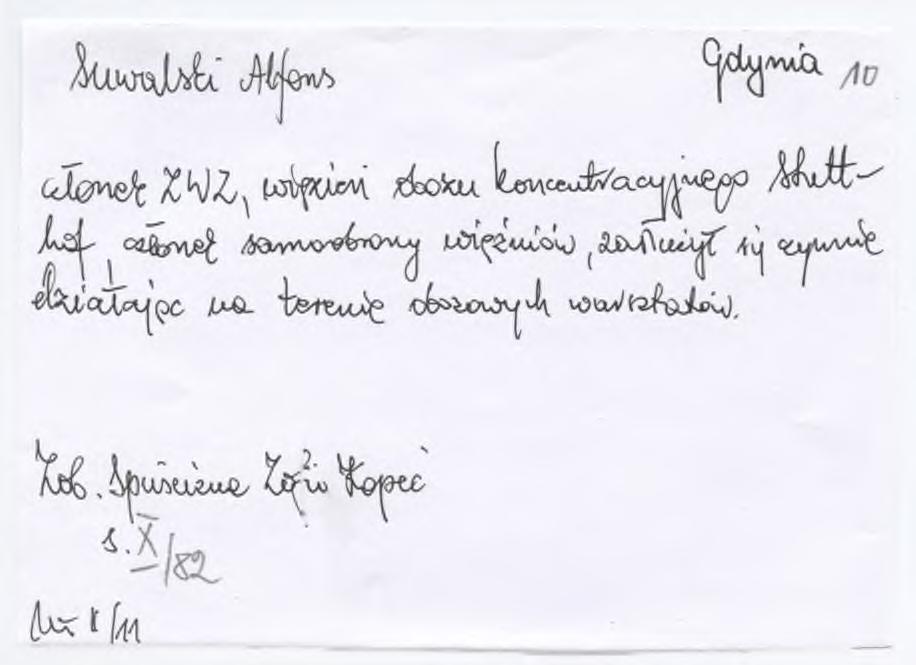 Suwalski Alfons Gdynia 10
członek ZWZ, więzień obozu koncentracyjnego Stutt-
hof, członek samoobrony więźniów, zasłużył się czynnie
działając na terenie obozowych warsztatów.
Zob. Spuścizna Kopeć
s. X/82
/11